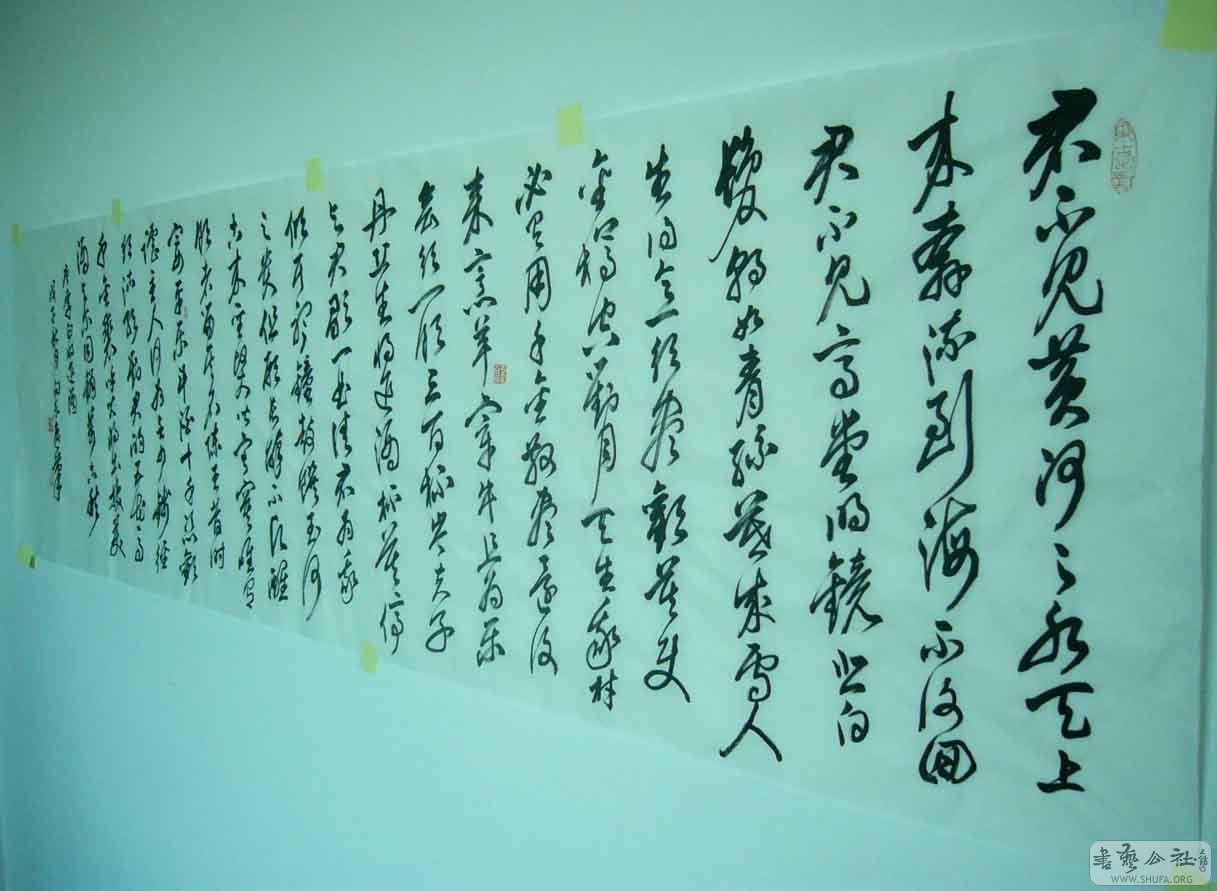 君不见黄河之水天上
来奔流到海不复回
君不见高堂明镜悲白
发朝如青丝暮成雪人
生得意须尽欢莫使
金樽空对月天生我材
必有用千金散尽还复
来烹羊宰牛且为乐
会须一饮三百杯岑夫子
丹丘生将进酒杯莫停
与君歌一曲请君为我
倾耳听钟鼓馔玉何
足贵但愿长醉不复醒
古来圣贤皆寂寞惟有
饮者留其名陈王昔时
宴平乐斗酒十千恣欢
谑主人何为言少钱径
须沽取对君酌五花马
千金裘呼儿将出换美
酒与尔同销万古愁
唐李白将进酒
書藝公社
WWW.SHUFA.ORG